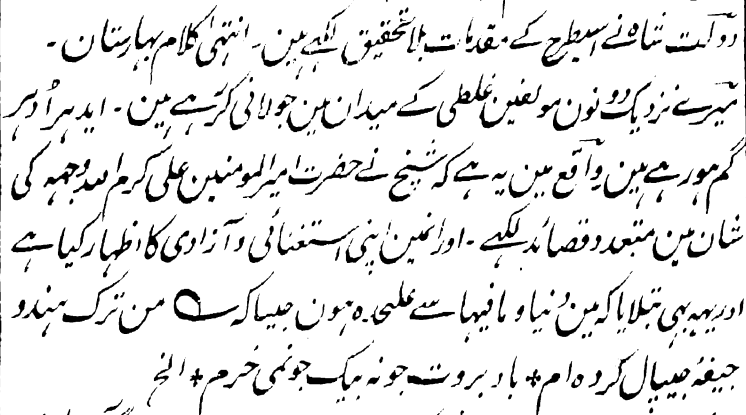 دولت شاہ نے اسیطرح کے مقدمات بلا تحقیق لکھے ہین۔ انتہیٰ کلام بہارستان۔
میرے نزدیک دونون مولفین غلطی کے میدان مین جولانی کرتے ہین۔ ایدہر اُدہر
گم ہو رہے ہین واقع مین یہ ہے کہ شیخ نے حضرت امیر المومنین علی کرم اللہ وجہہ کی
شان مین متعدد قصائد لکھے۔ اور انمین اپنی استغنائی و آزادی کا اظہار کیا ہے
اور یہہ بہی بتلایا کہ مین دنیا و مافیہا سے علیحدہ ہون جیسا کہ ؎ من ترک ہندو
جیفۂ جیپال کردہ ام + باد بروت جونہ بیک جو نمی خرم + الخ